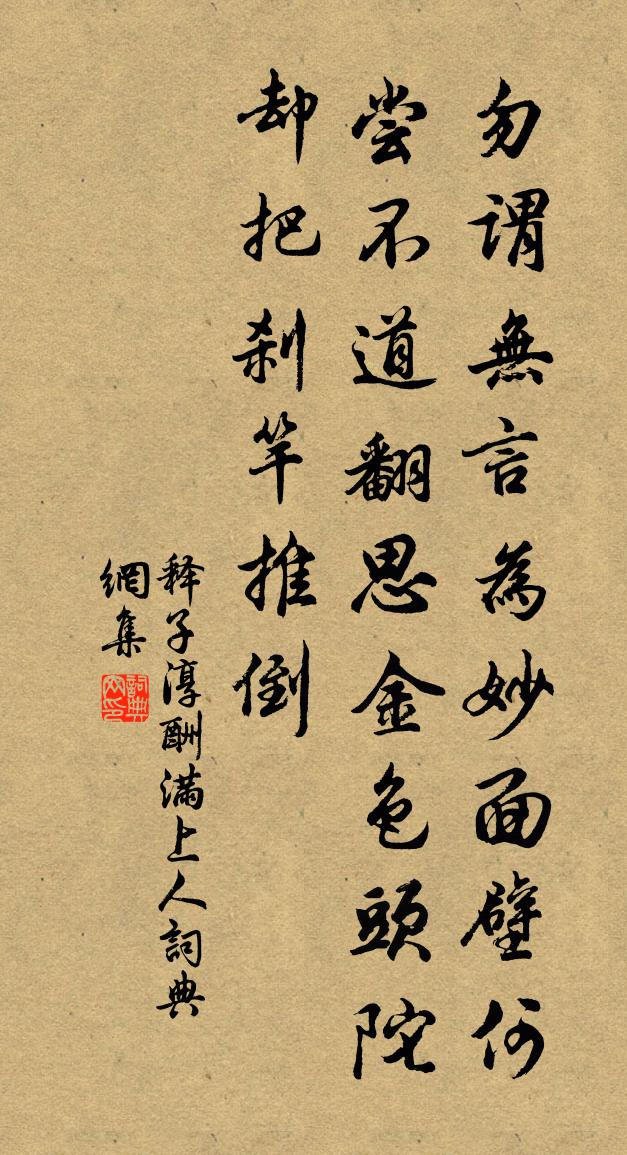 勿謂無言為妙面壁何
尝不道翻思金色頭陀
却把刹竿推倒
释子淳酬滿上人詞典
網集
詞典
网印